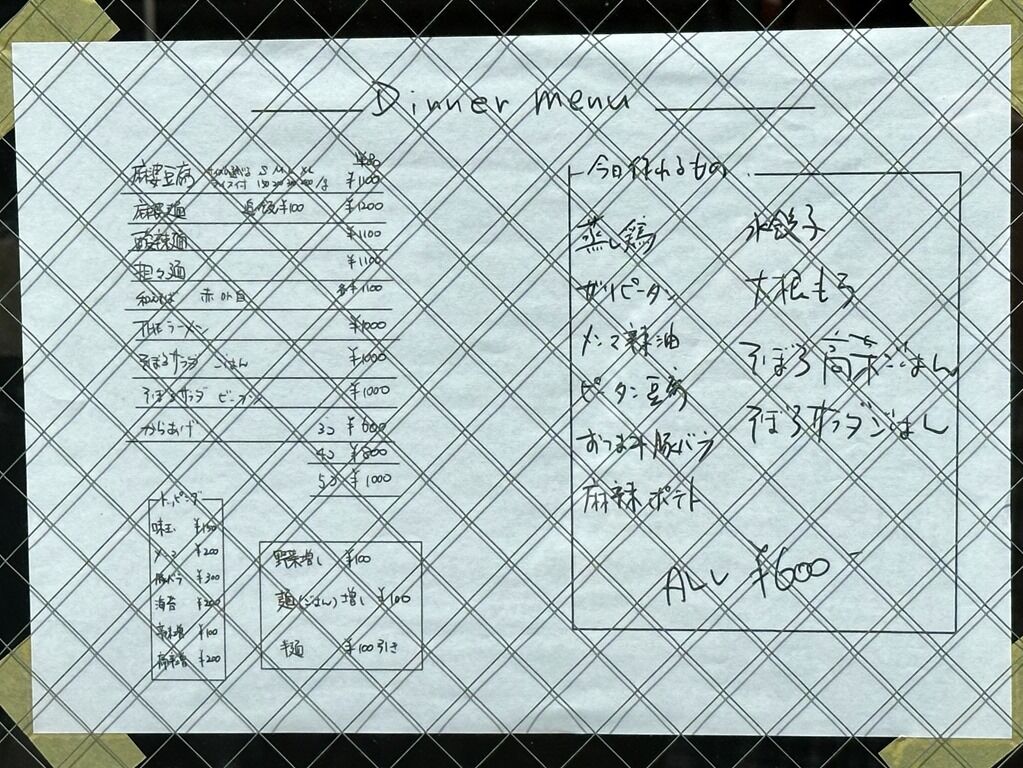 Dinner menu
麻婆豆腐 S M L XL ¥1100
麻婆麺 ¥100 ¥1200
酸辣麺 ¥1100
担々麺 ¥1100
赤 or 白 ¥1100
THEラーメン ¥1000
そぼろサラダ ごはん ¥1000
そぼろサラダ ビーフン ¥1000
からあげ 3コ ¥600
4コ ¥800
5コ ¥1000
トッピング
味玉 ¥150
メンマ ¥200
豚バラ ¥300
海苔 ¥200
辣味増 ¥100
¥200
野菜増し ¥100
麺(ごはん)増し ¥100
半麺 ¥100引き
今日作れるもの
蒸し鶏
ザリピータン
メンマ辣油
ピータン豆腐
おつまみ豚バラ
麻辣ポテト
水餃子
大根もち
そぼろ 高菜ごはん
そぼろサラダごはん
ALL ¥600